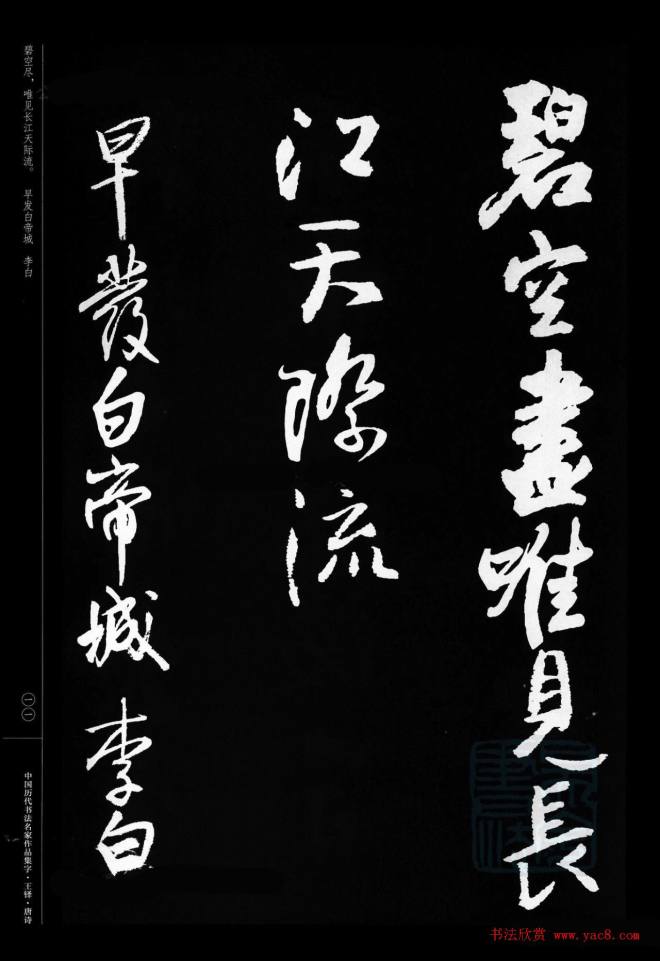 碧空盡唯見長
江天際流
早發白帝城 李白
碧空尽，唯见长江天际流。 早发白帝城 李白
一〇一
中国历代书法名家作品集字·王铎·唐诗
书法欣赏 www.yac8.com